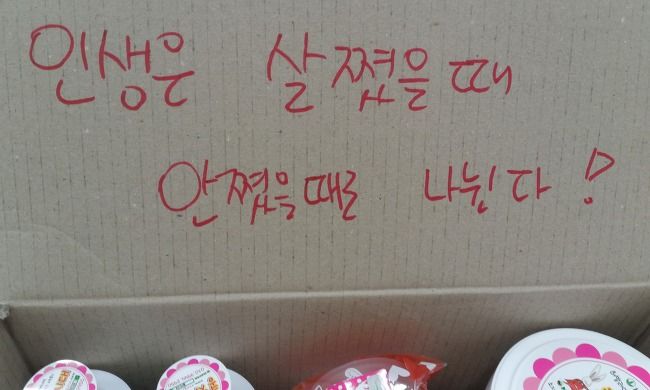 인생은 살쪘을때
안쪘을때로 나뉜다!